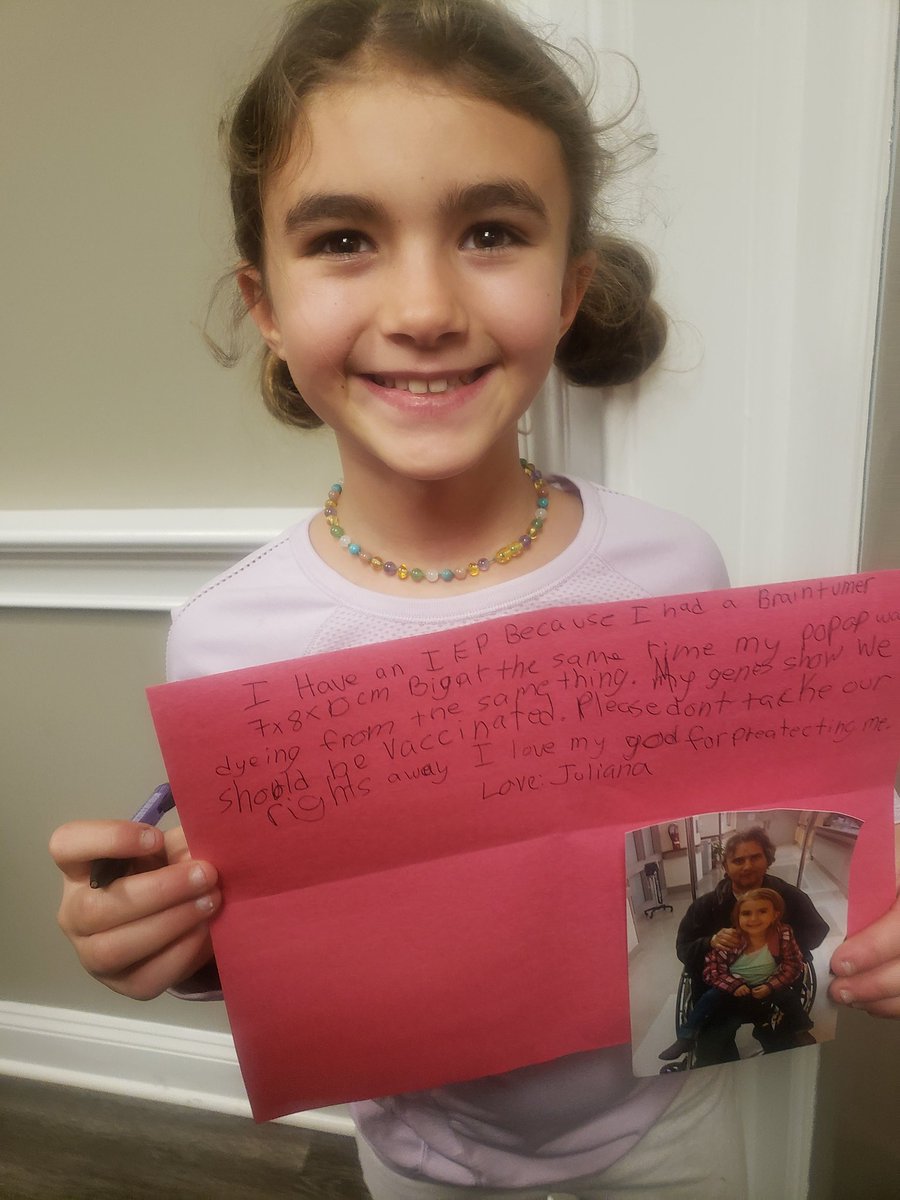 I Have an IEP Because I had a Braintumer
7x8x10cm Big at the same time my popap was
dyeing from the same thing. My genes show we
should be vaccinated. Please dont tacke our
rights away I love my god for preatecting me.
Love: Juliana